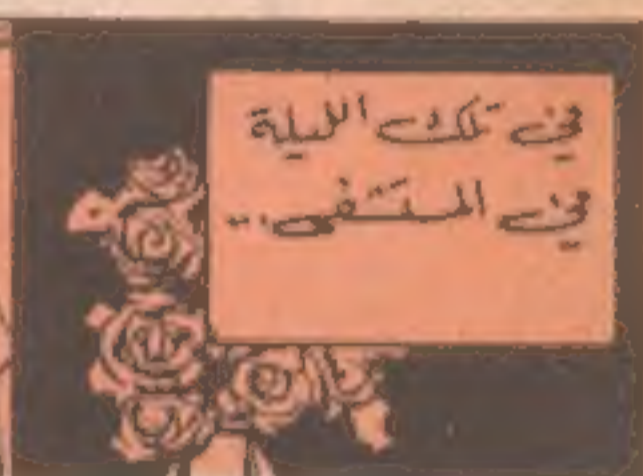 في تلك الليلة
في المستشفى..